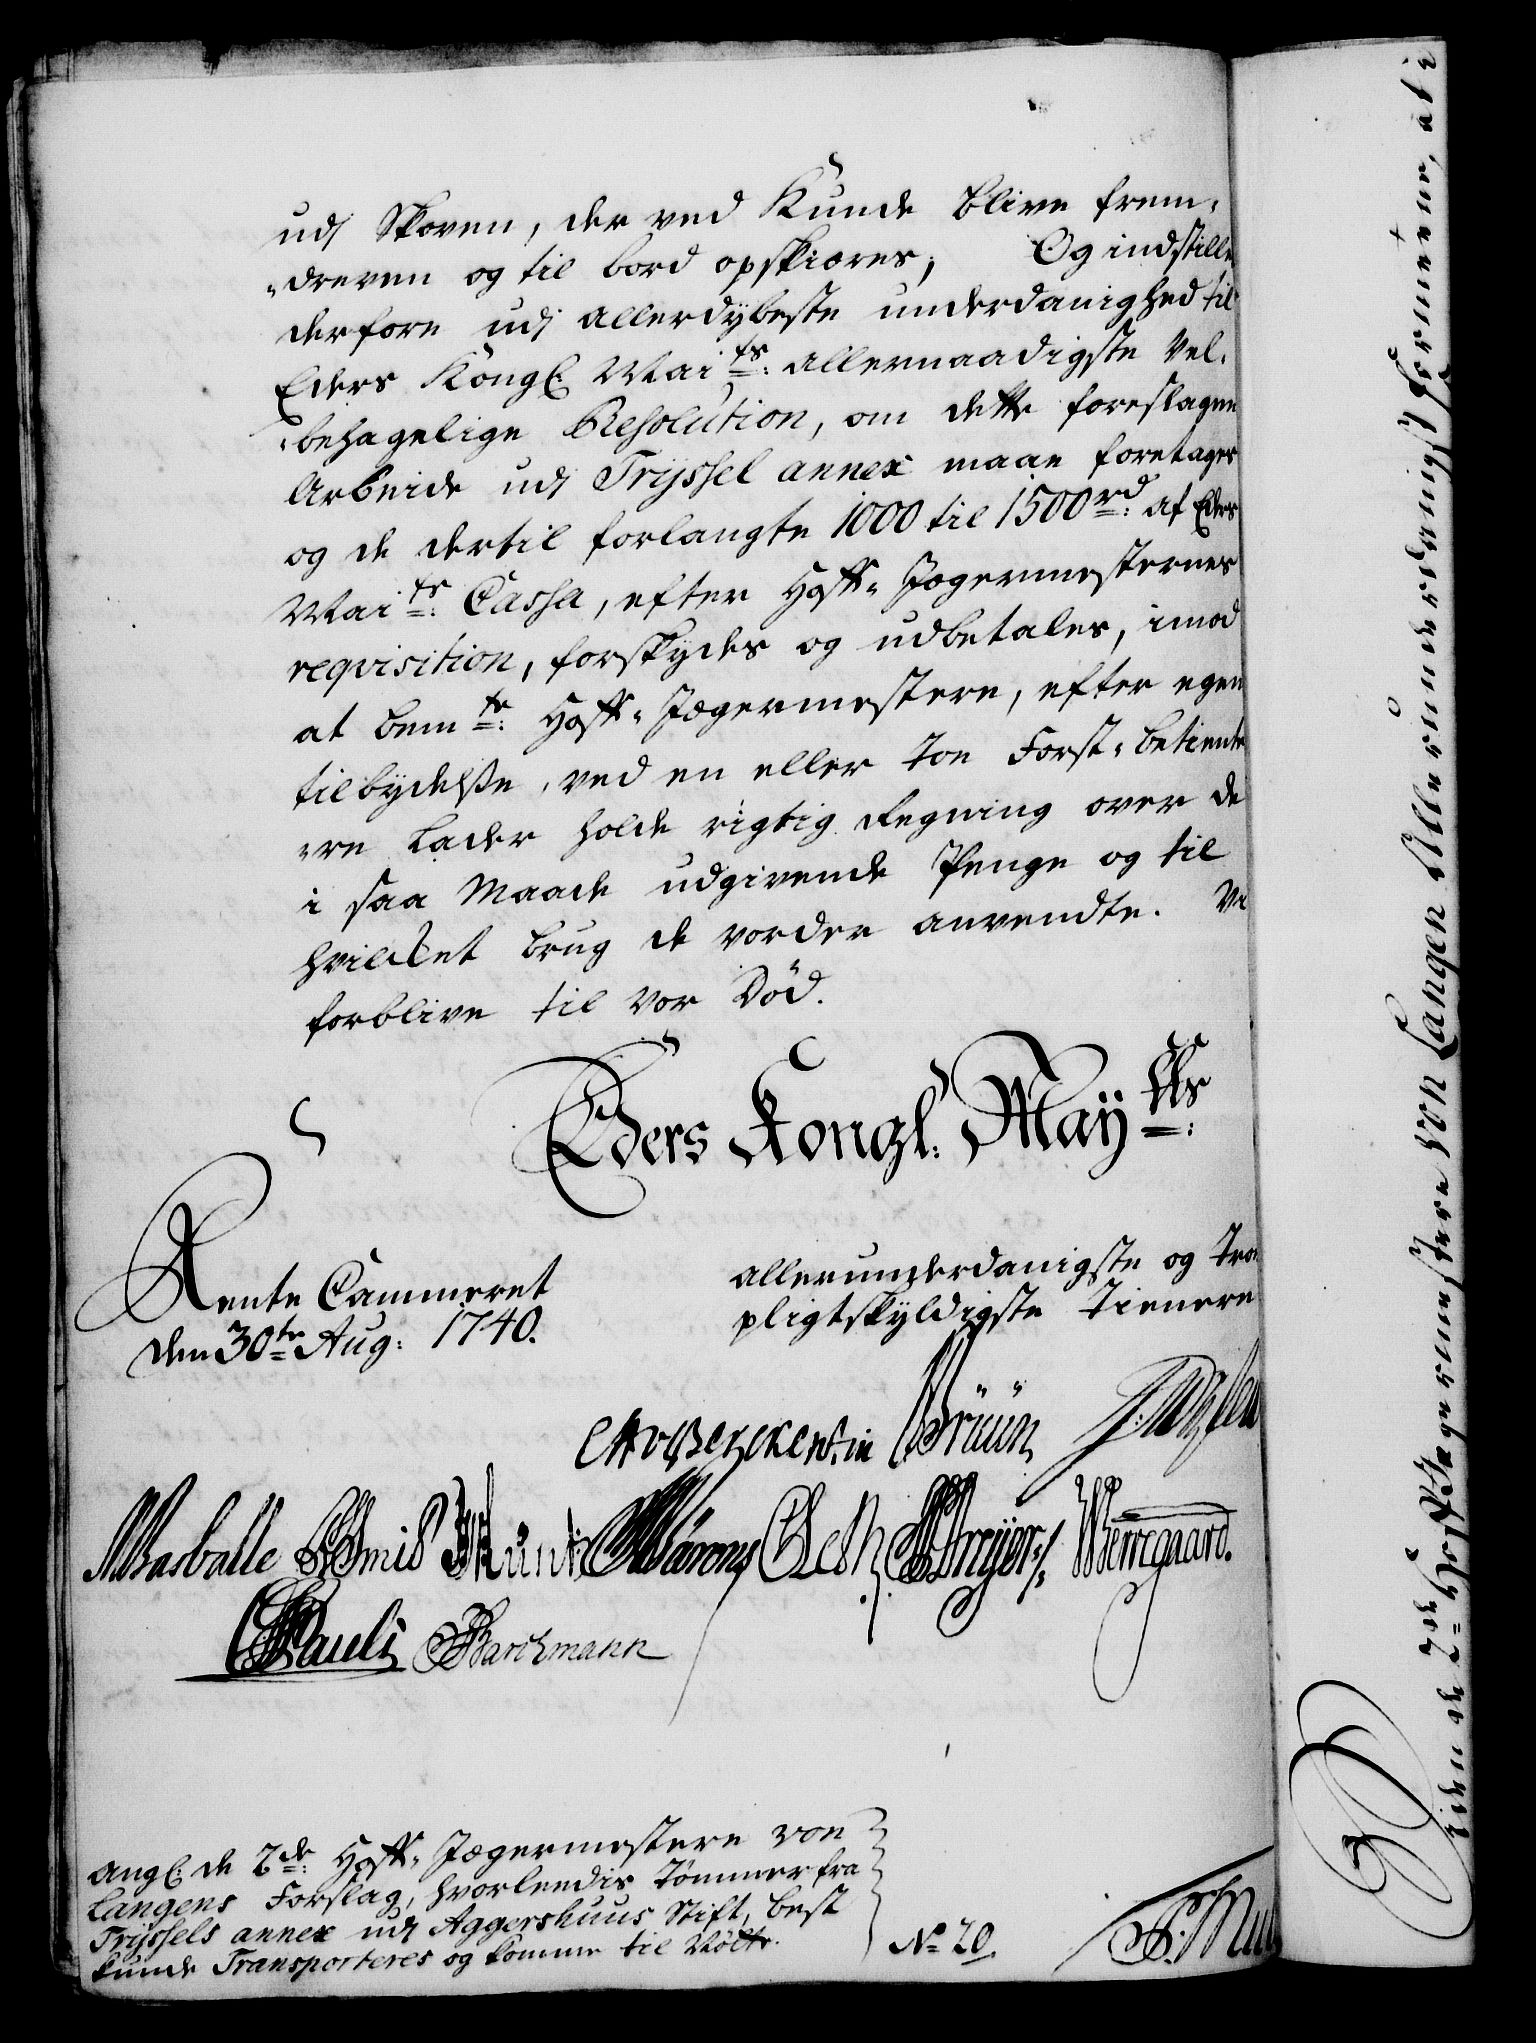 udi Skoven, der ved Kunde blive frem¬
¬dreven og til bord opskiæres; Og indstille
derfore udi allerdybeste underdanighed til
Eders Kongl: Mai:ts allernaadigste Vel¬
¬behagelige Resolution, om dette foreslagne
Arbeide udi Tryssel annex maae foretages
og de dertil forlangte 1000 til 1500 rd: af Eders
Mai:ts Cassa, efter Hoff-Jægermesternes
reqvisition, forskydes og udbetales, imod
at bem:te Hoff-Jægermestere, efter egen
tilbydelse, ved en eller toe Forst-betiente
¬re lader holde rigtig Regning over de
i saa Maade udgivende Penge og til
hvilket brug de vorder anvendte. Vi
forblive til vor Død.
Eders Kongl: Maÿ:tts
Rente Cammeret
den 30:te Aug: 1740.
allerunderdanigste og Troe
pligtskyldigste Tienere
Berckentin Bruun
Basballe Munk Oeth Dreyer Werregaard.
Pauli Barchmann
ang: de 2:de Hoff-Jægermestere von
Langens Forslag, hvorlendis Tømmer fra
Tryssels annex udi Aggershuus Stift, best
kunde Transporteres og komme til Nøtte.
No 20.
Siden de 2:de Hoff-Jægermestere von Langen Allerunderdanigst formeene, at i